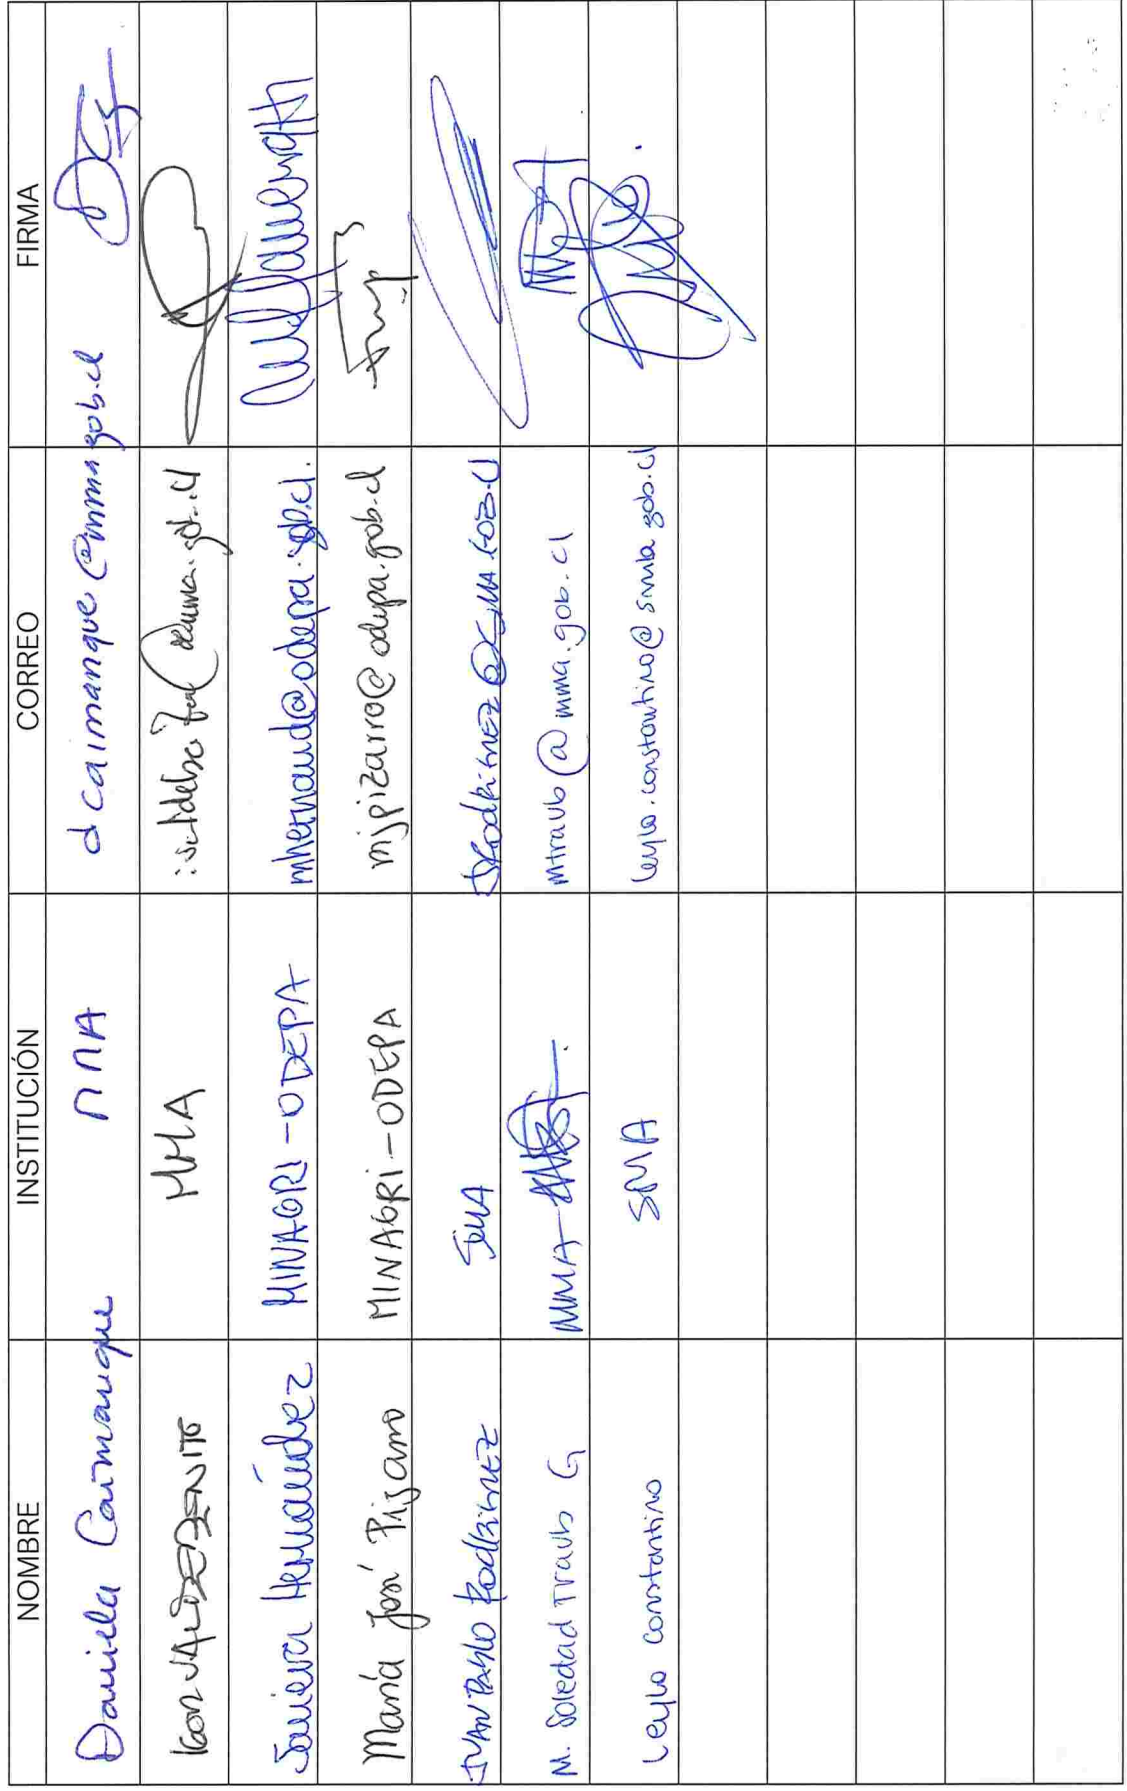 NOMBRE INSTITUCIÓN CORREO FIRMA
Daniela Caimanque MMA dcaimanque@mma.gob.cl
IGOR VALDEBENITO MMA
Javiera Hernández MINAGRI-ODEPA mhernand@odepa.gob.cl.
María José Pizarro MINAGRI-ODEPA mjpizarro@odepa.gob.cl
JUAN PABLO RODRIGUEZ SMA JRODRIGUEZ@SMA.GOB.CL
M. Soledad Traub G MMA- mtraub@mma.gob.cl
Leyla Constantino SMA leyla.constantino@sma.gob.cl